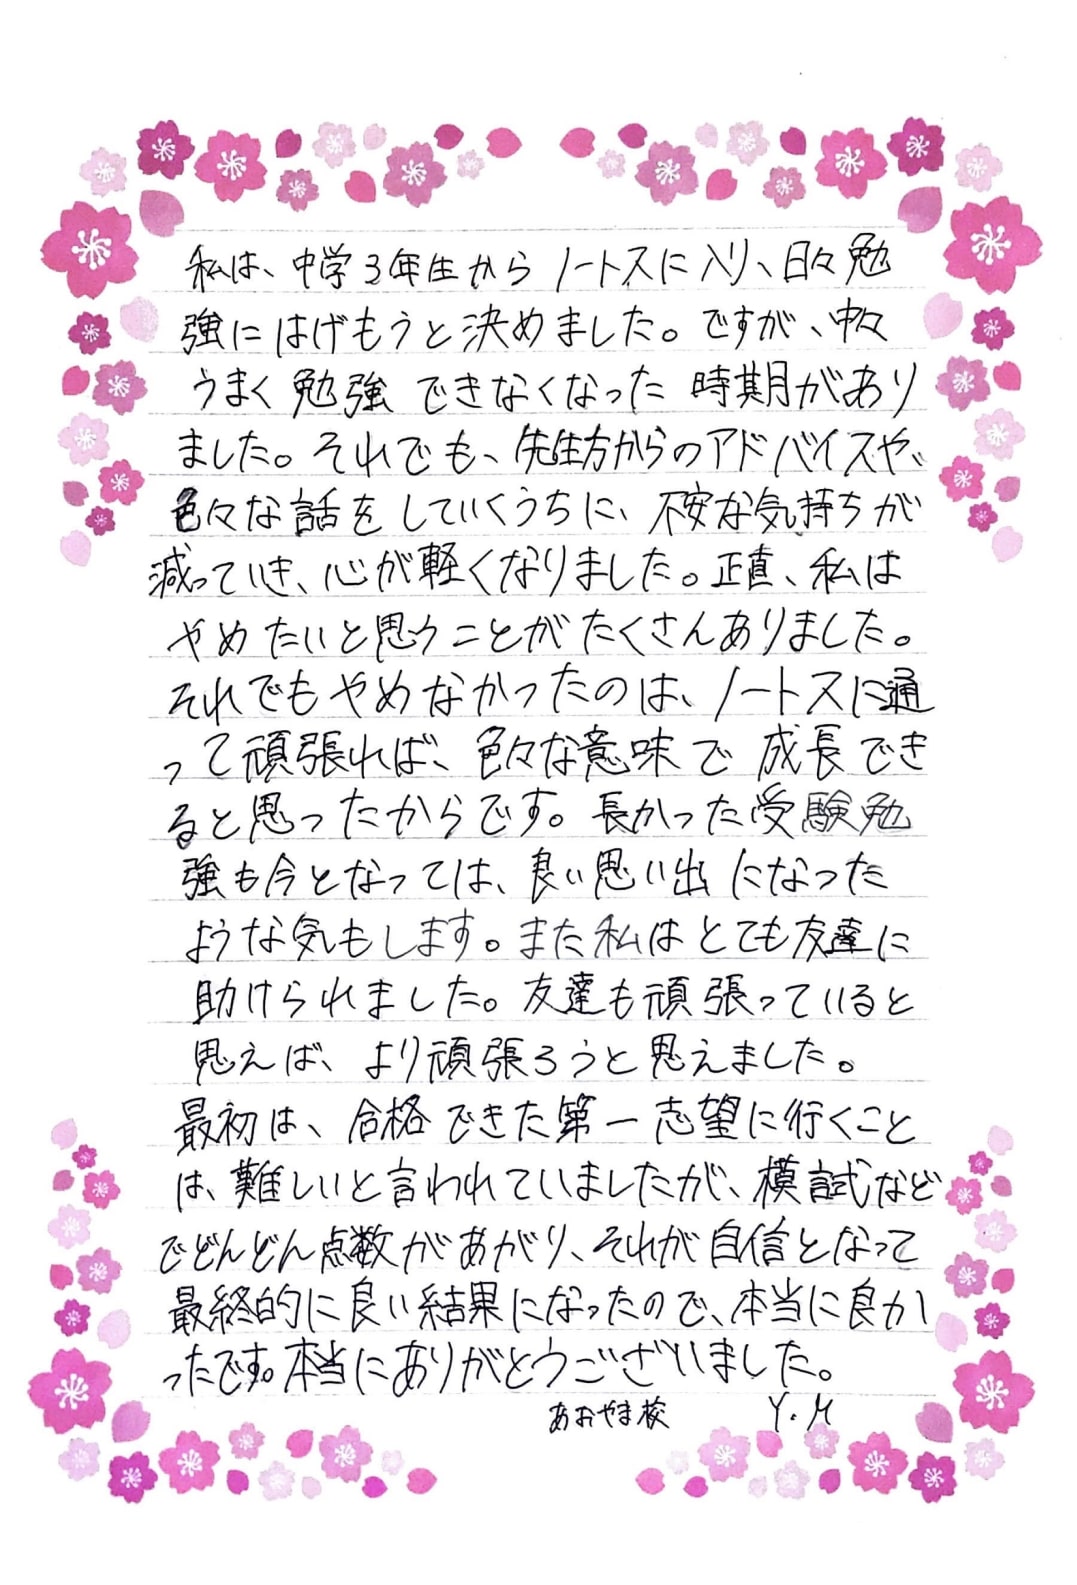 私は、中学3年生からノートスに入り、日々勉
強にはげもうと決めました。ですが、中々
うまく勉強できなくなった時期があり
ました。それでも、先生方からのアドバイスや、
色々な話をしていくうちに、不安な気持ちが
減っていき、心が軽くなりました。正直、私は
やめたいと思うことがたくさんありました。
それでもやめなかったのは、ノートスに通
って頑張れば、色々な意味で成長でき
ると思ったからです。長かった受験勉
強も今となっては、良い思い出になった
ような気もします。また私はとても友達に
助けられました。友達も頑張っていると
思えば、より頑張ろうと思えました。
最初は、合格できた第一志望に行くこと
は、難しいと言われていましたが、模試など
でどんどん点数があがり、それが自信となって
最終的に良い結果になったので、本当に良か
ったです。本当にありがとうございました。
あおやま校 Y.M